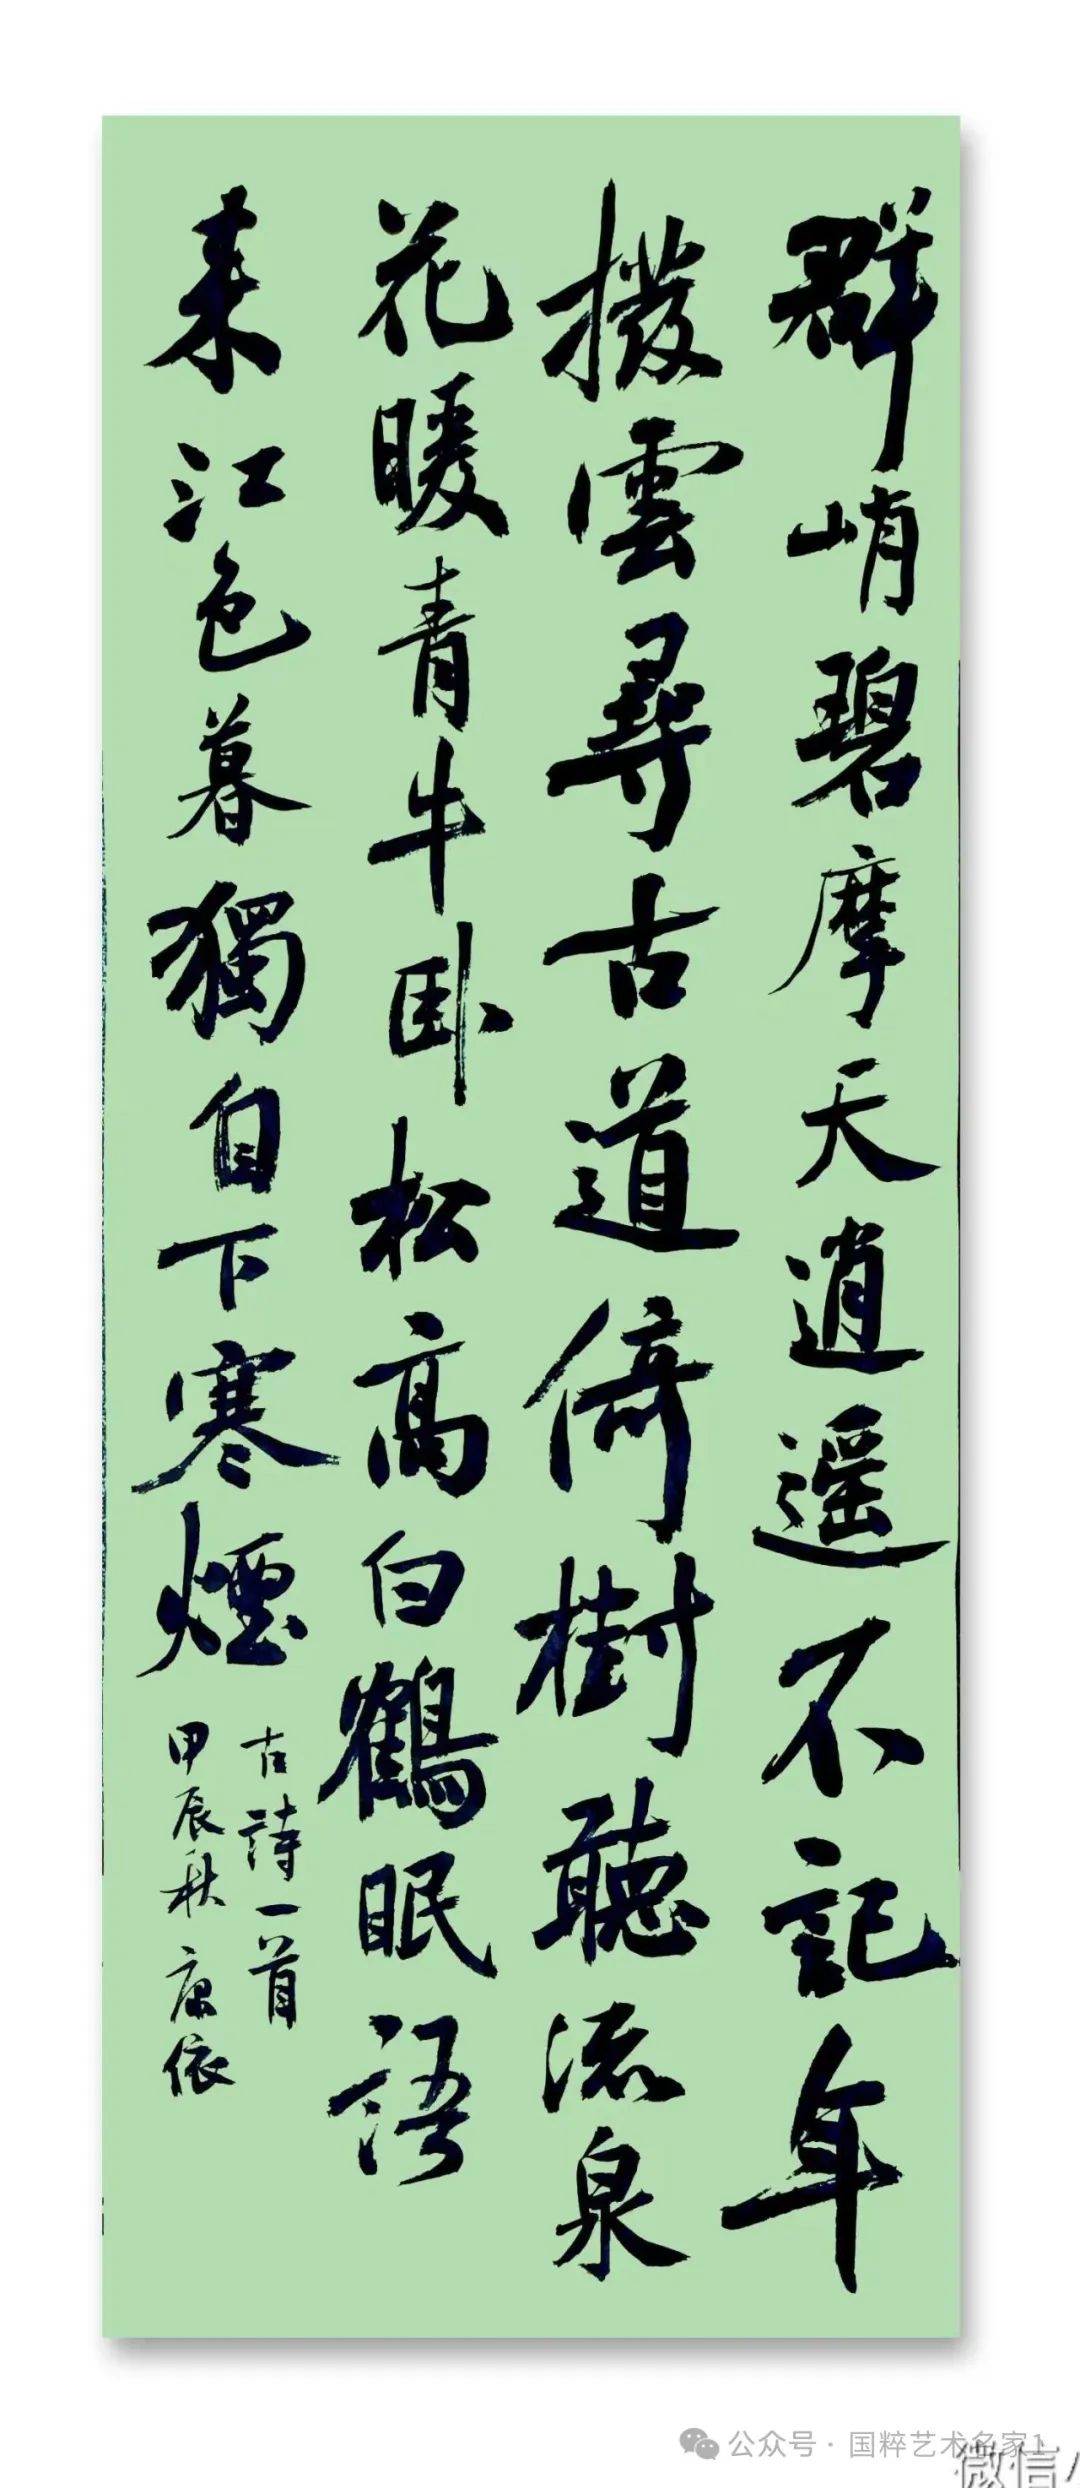 群峭碧摩天逍遥不記年
撥雲尋古道倚樹聽流泉
花暖青牛卧松高白鶴眠語
来江色暮獨自下寒煙
古詩一首
甲辰秋 康依
公众号·国粹艺术名家1
微信